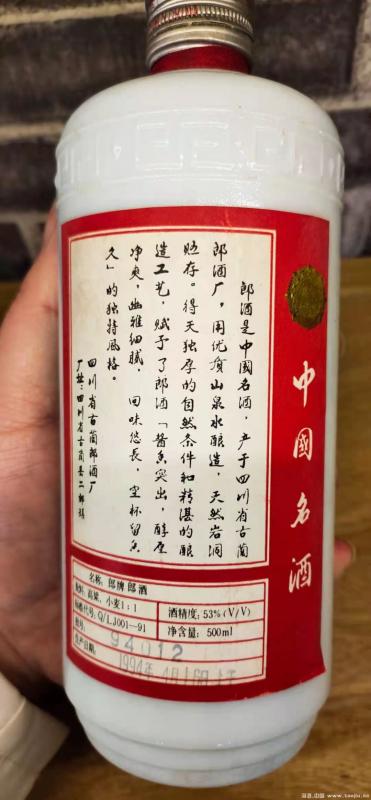 中國名酒
郎酒是中國名酒，产于四川省古蔺
郎酒厂，用优质山泉水酿造，天然岩洞
贮存。得天独厚的自然条件和精湛的酿
造工艺，赋予了郎酒「酱香突出，醇厚
净爽，幽雅细腻，回味悠長，空杯留香
久」的独特風格。
四川省古蔺郎酒厂
厂址：四川省古蔺县二郎镇
名称：郎牌郎酒
高粱、小麦1：1
标准代号：Q/LJ001—91
批号：94012
生产日期：1994年4月16日
酒精度：53%(V/V)
净含量：500ml
淘酒.中国 - www.taojiu.so